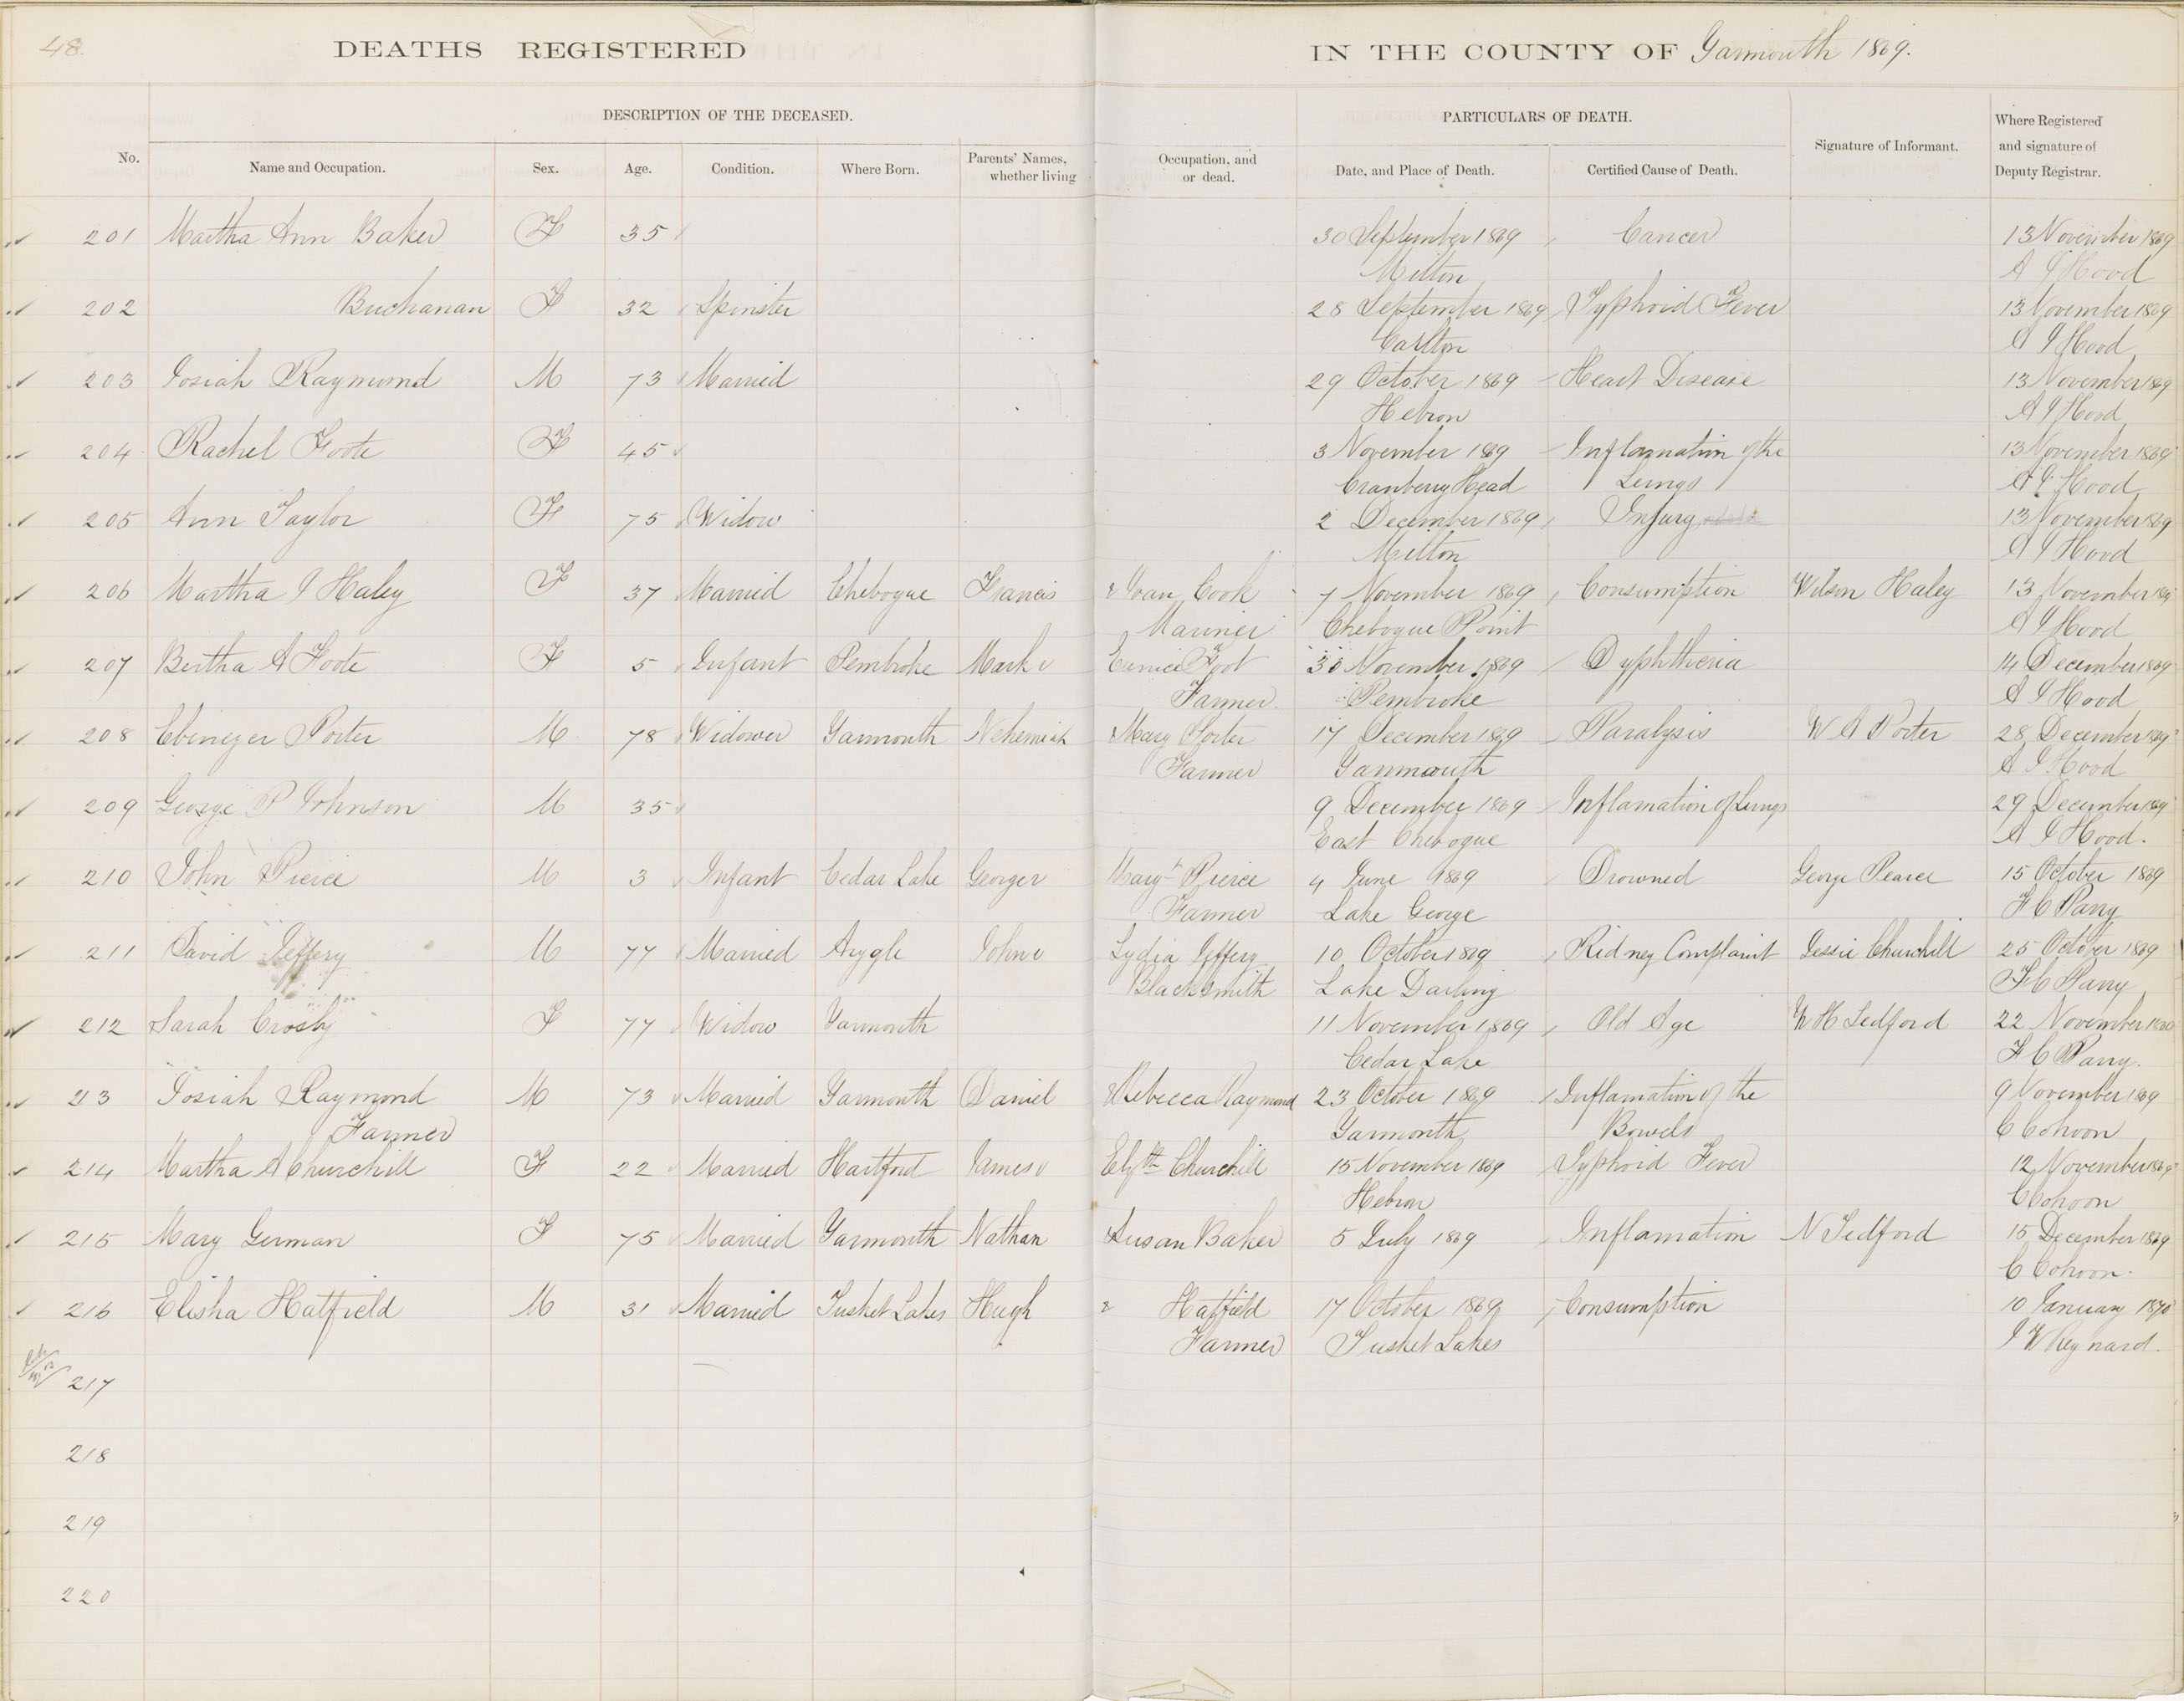 48.
DEATHS REGISTERED IN THE COUNTY OF Yarmouth 1869.
DESCRIPTION OF THE DECEASED. PARTICULARS OF DEATH.
No. Name and Occupation. Sex. Age. Condition. Where Born. Parents' Names, whether living Occupation, and or dead. Date, and Place of Death. Certified Cause of Death. Signature of Informant. Where Registered and signature of Deputy Registrar.
201 Martha Ann Baker F 35 30 September 1869 Cancer 13 November 1869
Milton A J Hood
202 Buchanan F 32 Spinster 28 September 1869 Typhoid Fever 13 November 1869
Carlton A J Hood
203 Josiah Raymond M 73 Married 29 October 1869 Heart Disease 13 November 1869
Hebron A J Hood
204 Rachel Foote F 45 3 November 1869 Inflamation of the 13 November 1869
Cranberry Head Lungs A J Hood
205 Ann Taylor F 75 Widow 2 December 1869 Injury 13 November 1869
Milton A J Hood
206 Martha J Haley F 37 Married Chebogue Francis & Joan Cook 7 November 1869 Consumption Wilson Haley 13 November 1869
Mariner Chebogue Point A J Hood
207 Bertha A Foote F 5 Infant Pembroke Mark & Eunice Foot 30 November 1869 Dyphtheria 14 December 1869
Farmer Pembroke A J Hood
208 Ebinezer Porter M 78 Widower Yarmouth Nehemiah & Mary Porter 17 December 1869 Paralysis W A Porter 28 December 1869
Farmer Yarmouth A J Hood
209 George P Johnson M 35 9 December 1869 Inflamation of Lungs 29 December 1869
East Chebogue A J Hood.
210 John Pierce M 3 Infant Cedar Lake George & Maryt Pierce 4 June 1869 Drowned George Pearce 15 October 1869
Farmer Lake George F C Parry
211 David Jeffery M 77 Married Argyle John & Lydia Jeffery 10 October 1869 Kidney Complaint Jessie Churchill 25 October 1869
Blacksmith Lake Darling F C Parry
212 Sarah Crosby F 77 Widow Yarmouth 11 November 1869 Old Age W H Tedford 22 November
Cedar Lake F C Parry.
213 Josiah Raymond M 73 Married Yarmouth Daniel & Rebecca Raymond 23 October 1869 Inflamation of the 9 November 1869
Farmer Yarmouth Bowels C Cohoon
214 Martha A Churchill F 22 Married Hartford James & Elzth Churchill 15 November 1869 Typhoid Fever 12 November 1869
Hebron C Cohoon
215 Mary German F 75 Married Yarmouth Nathan Susan Baker 5 July 1869 Inflamation N Tedford 15 December 1869
C Cohoon.
216 Elisha Hatfield M 31 Married Tusket Lakes Hugh & Hatfield 17 October 1869 Consumption 10 January 1870
Farmer Tusket Lakes J W Reynard.
217
218
219
220